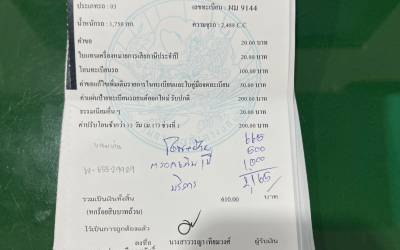 ประเภทรถ : 03 เลขทะเบียน : ผม 9144
น้ำหนักรถ : 1,750 กก. ความจุรถ : 2,488 C.C
ค่าขอ 20.00 บาท
ใบแทนเครื่องหมายการเสียภาษีประจำปี 20.00 บาท
โอนทะเบียนรถ 100.00 บาท
ค่าขอแก้ไขเพิ่มเติมรายการในทะเบียนและใบคู่มือจดทะเบียน 50.00 บาท
ค่าแผ่นป้ายทะเบียนรถยนต์ออกใหม่/รับปกติ 200.00 บาท
ธรรมเนียมอื่น ๆ 20.00 บาท
ค่าปรับโอนช้ากว่า 15 วัน (ม.17) ช่วงที่ 1 200.00 บาท
665
500
บริการ 1,000
2,165
รวมเป็นเงินทั้งสิ้น 610.00 บาท
(หกร้อยสิบบาทถ้วน)
ไว้เป็นการถูกต้องแล้ว
ลงชื่อ ผู้รับเงิน